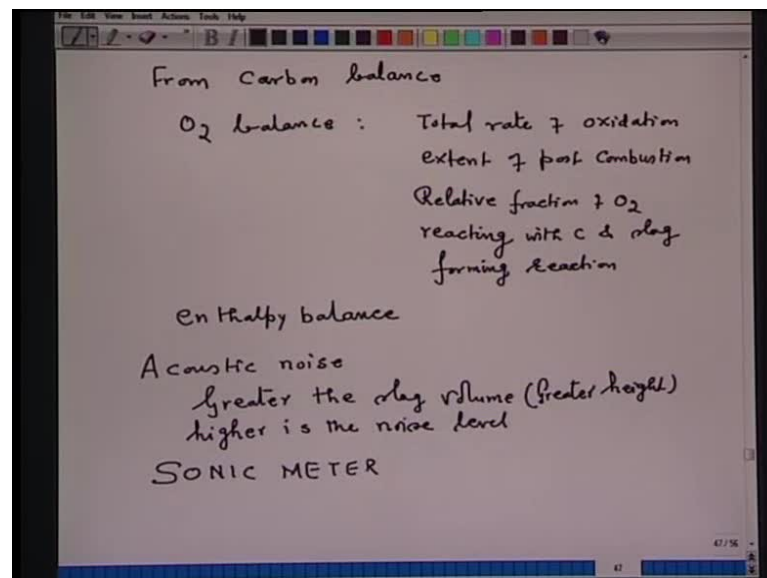 File Edit View Insert Actions Tools Help
B I
From Carbon balance
O2 balance : Total rate of oxidation
extent of post Combustion
Relative fraction of O2
reacting with C & slag
forming reaction
enthalpy balance
Acoustic noise
Greater the slag volume (Greater height)
higher is the noise level
SONIC METER
47/56
47